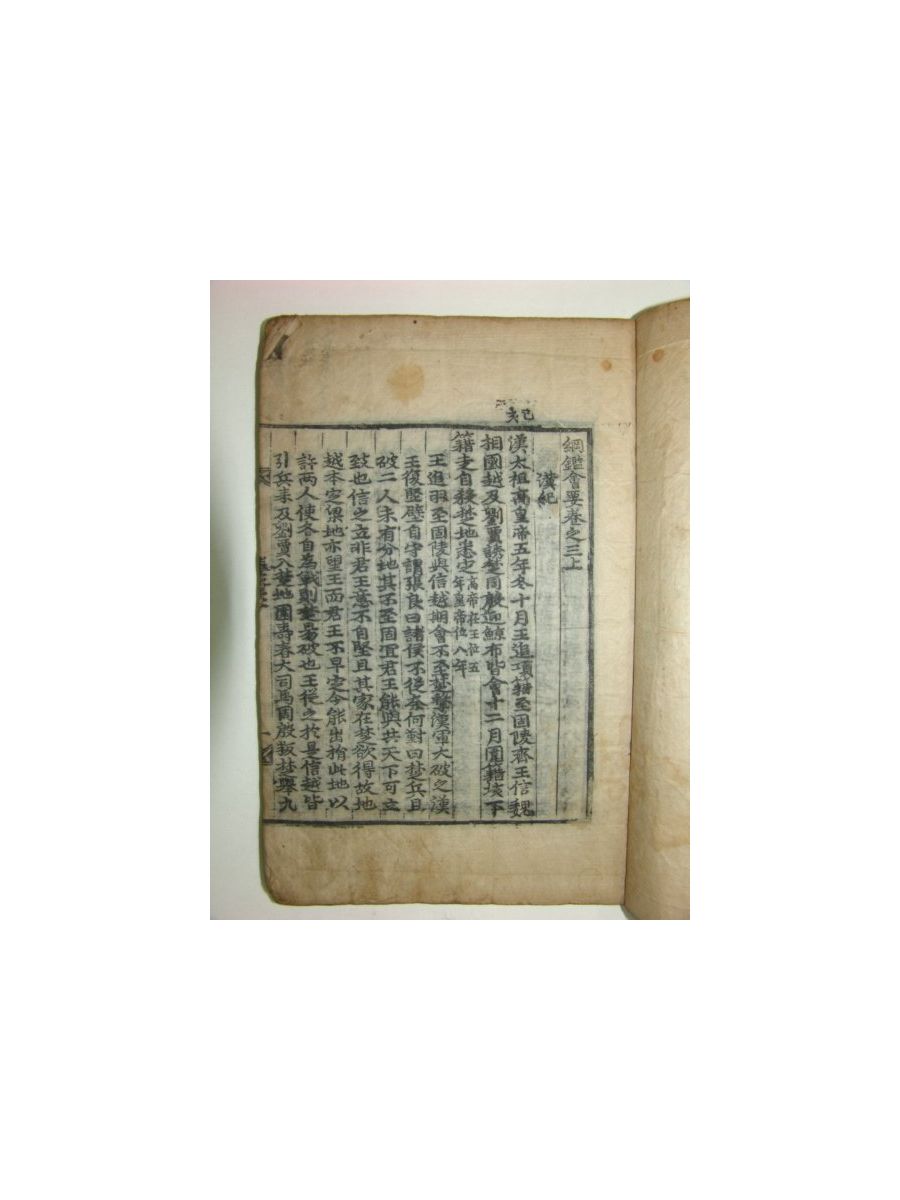 綱鑑會要卷之三上
漢紀
己亥
漢太祖高皇帝五年冬十月王追項籍至固陵齊王信魏
相國越及劉賈誘楚周殷迎鯨布皆會十二月圍籍垓下
籍走自殺楚地悉定高帝在王位五年皇帝位八年
王追羽至固陵與信越期會不至楚擊漢軍大破之漢
王復堅壁自守謂張良曰諸侯不從奈何對曰楚兵且
破二人未有分地其不至固宜君王能與共天下可立
致也信之立非君王意不自堅且其家在楚欲得故地
越本定梁地亦望王而君王不早定今能出捐此地以
許兩人使各自為戰則楚易破也王從之於是信越皆
引兵來及劉賈入楚地圍壽春大司馬周殷叛楚舉九